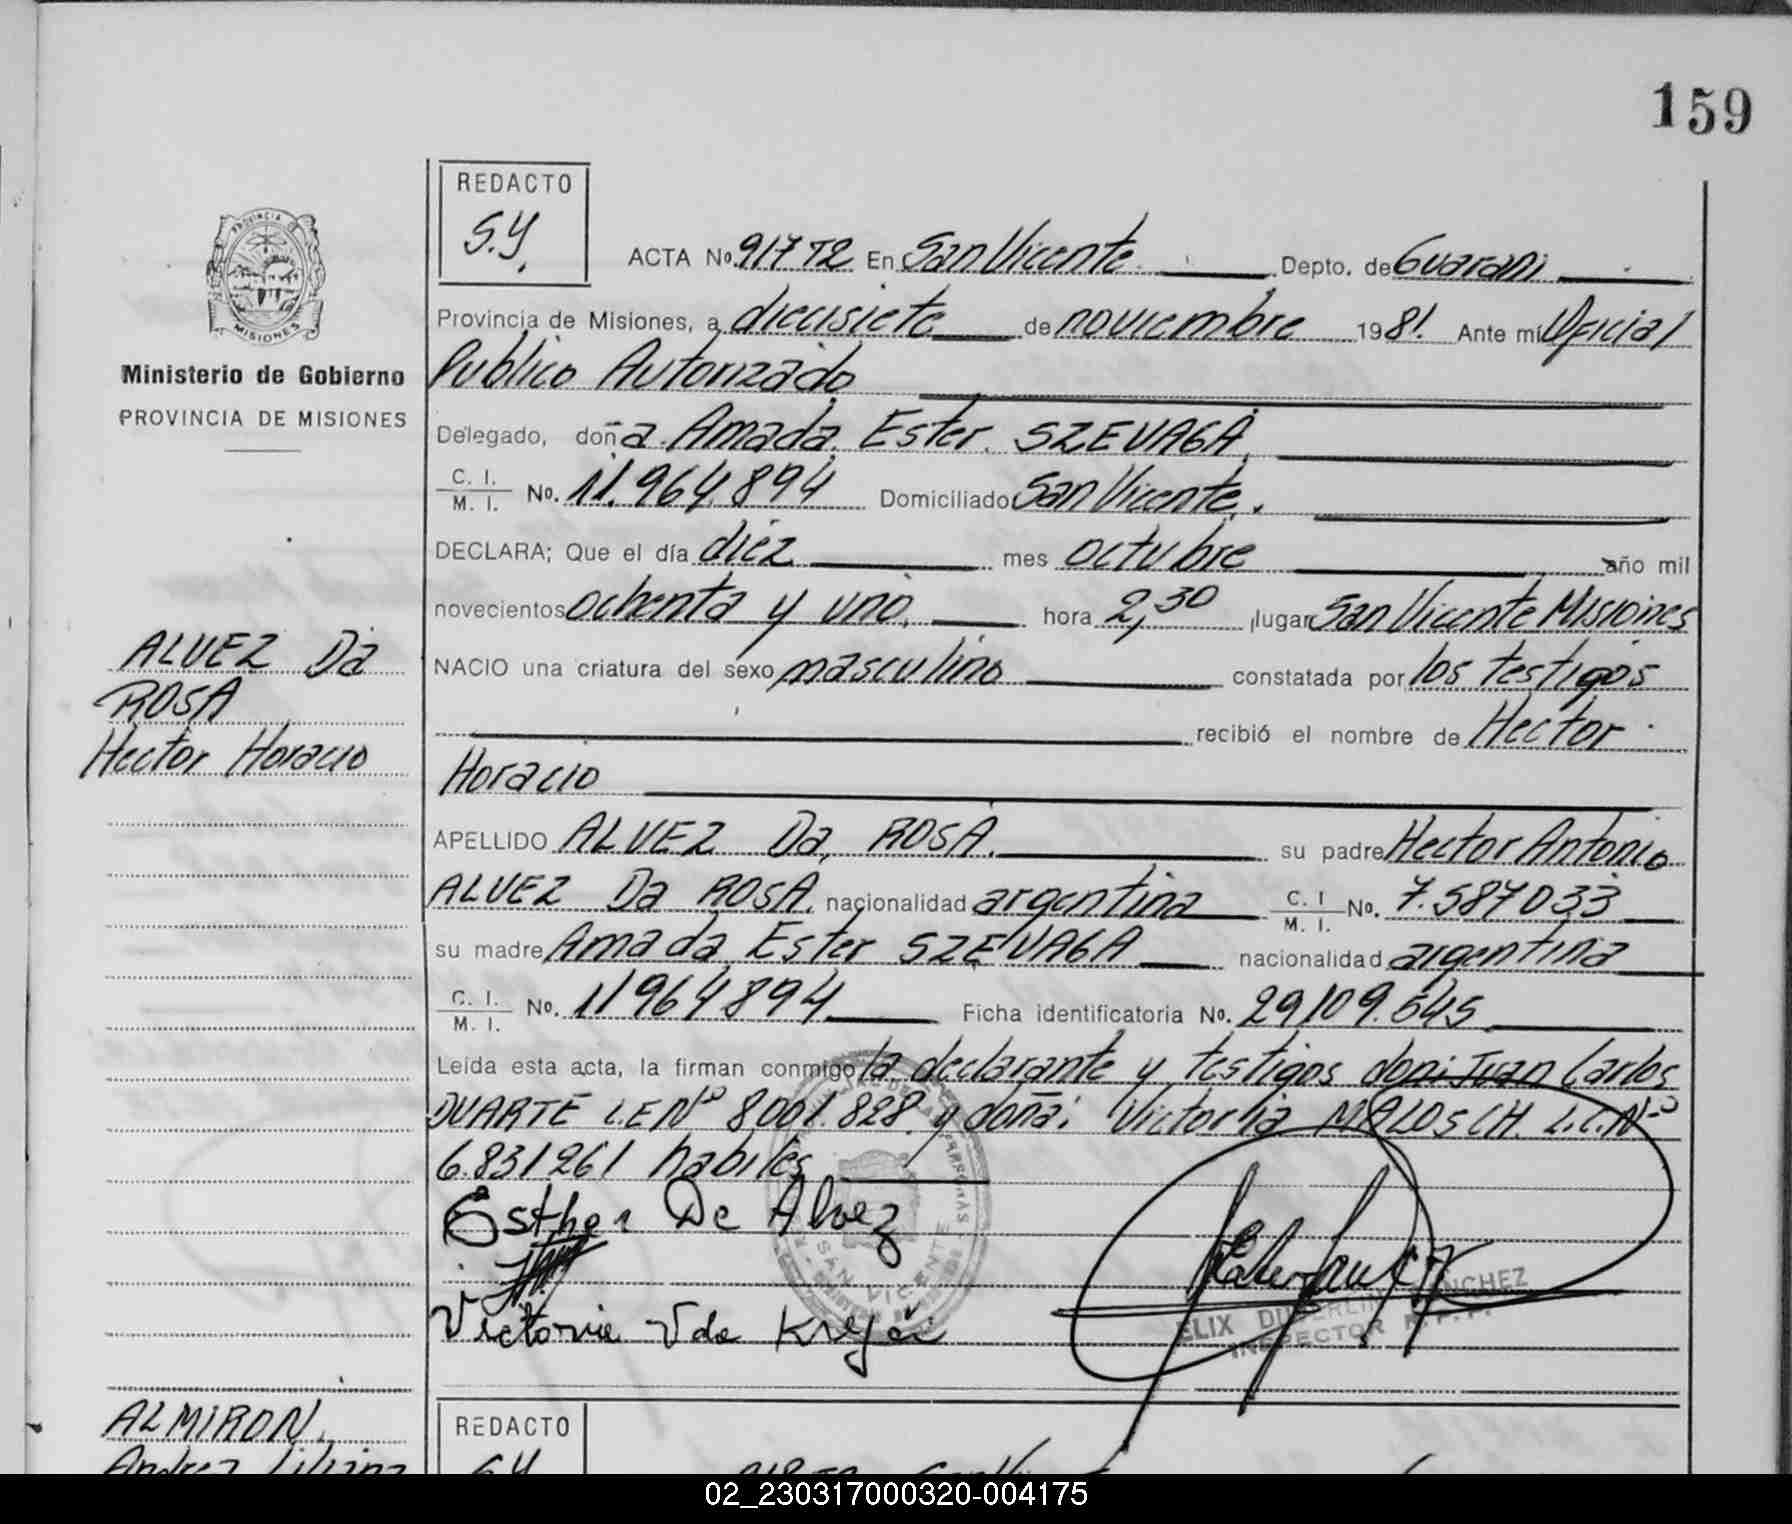 159
REDACTO
S.Y.
ACTA No. 917 T2 En San Vicente Depto. de Guarani
Provincia de Misiones, a diecisiete de noviembre 1981. Ante mi Oficial
Publico Autorizado
Delegado, doña Amada Ester SZEVAGA
C. I. / M. I. No. 11.964.894 Domiciliado San Vicente.
DECLARA; Que el día diez mes octubre año mil
novecientos ochenta y uno. hora 2,30 lugar San Vicente Misiones
NACIO una criatura del sexo masculino constatada por los testigos
recibió el nombre de Hector
Horacio
APELLIDO ALVEZ Da ROSA. su padre Hector Antonio
ALVEZ Da ROSA. nacionalidad argentina C. I / M. I. No. 7.587033
su madre Amada Ester SZEVAGA nacionalidad argentina
C. I. / M. I. No. 11964894 Ficha identificatoria No. 29109.545
Leída esta acta, la firman conmigo la declarante y testigos don: Juan Carlos
DUARTE L.E Nº 8.001.828 y doña: Victoria MALOSCH. L.C. Nº
6.831261 habiles
Esther De Alvez
Victoria Vda Krejci
SAN VICENTE
SANCHEZ
INSPECTOR
PROVINCIA DE
MISIONES
Ministerio de Gobierno
PROVINCIA DE MISIONES
ALVEZ Da
ROSA
Hector Horacio
ALMIRON,
REDACTO
S.Y.
02_230317000320-004175